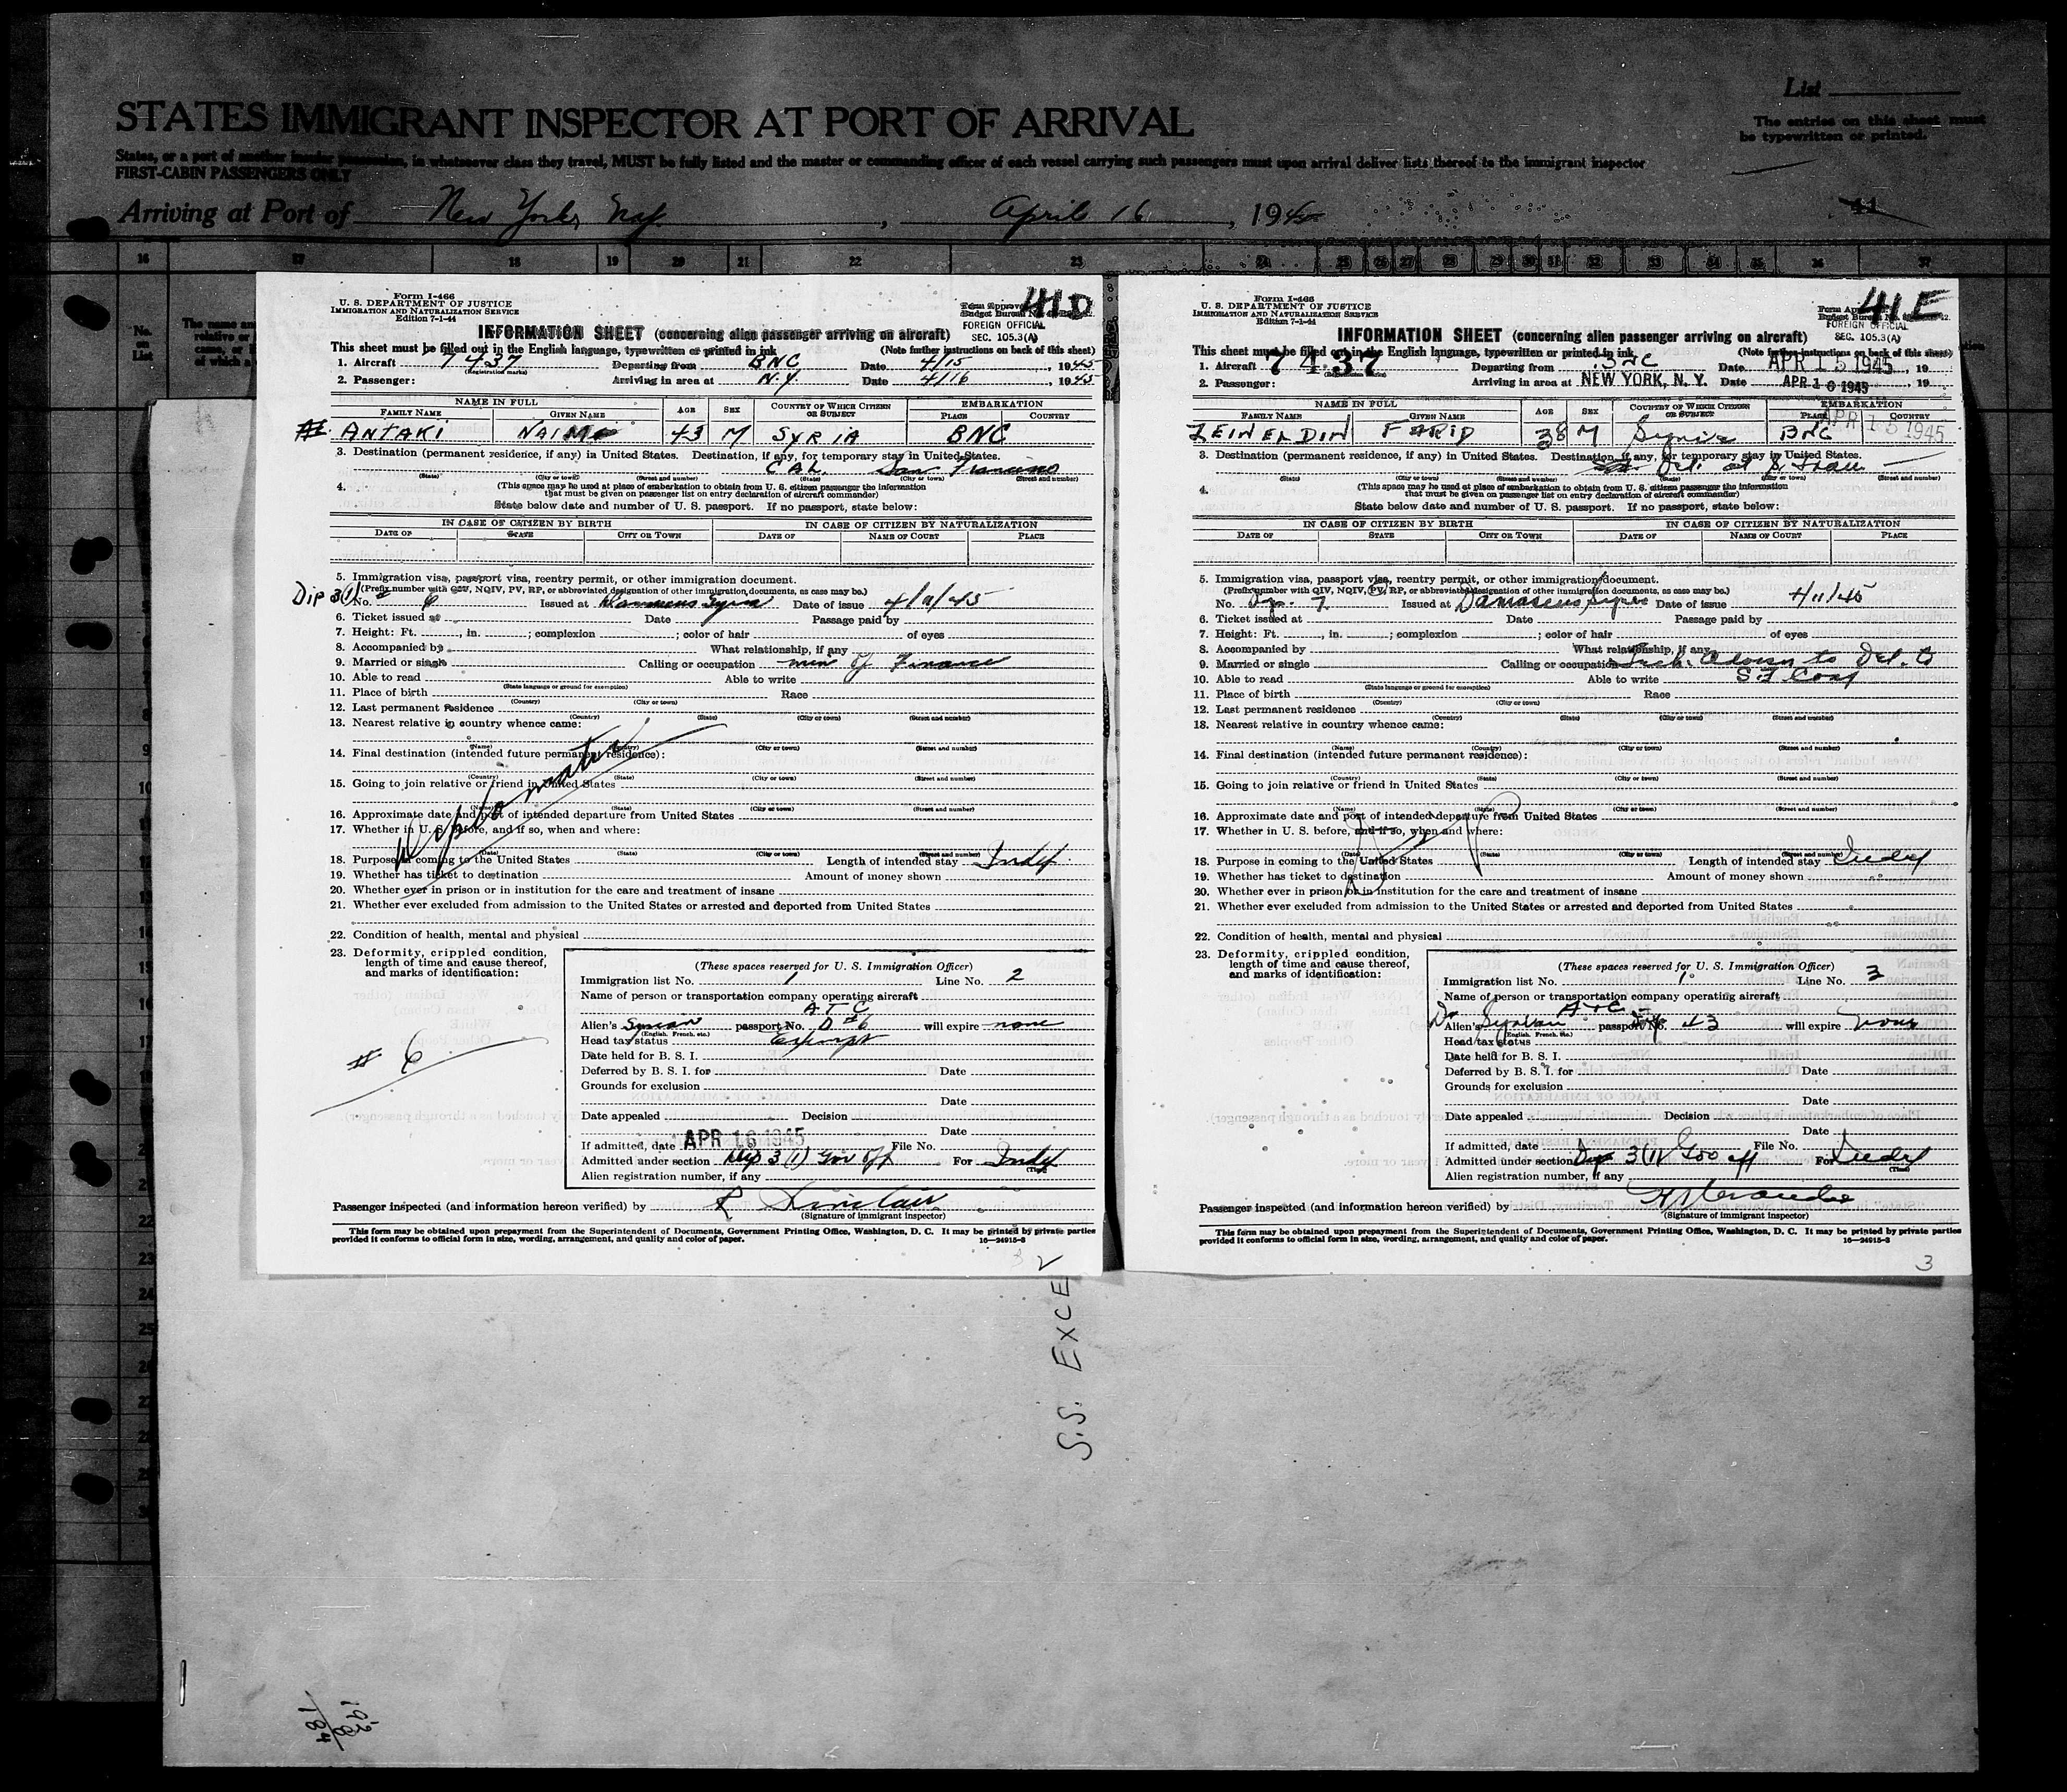 List
STATES IMMIGRANT INSPECTOR AT PORT OF ARRIVAL
The entries on this sheet must
be typewritten or printed.
States, or a part of another insular possession, in whatsoever class they travel, MUST be fully listed and the master or commanding officer of each vessel carrying such passengers must upon arrival deliver lists thereof to the immigrant inspector
FIRST-CABIN PASSENGERS ONLY
Arriving at Port of New York, April 16, 1945
16 17 18 19 20 21 22 23 24 25 26 27 28 29 30 31 32 33 34 35 36 37
No. on List
41D
Form I-466
U. S. DEPARTMENT OF JUSTICE
IMMIGRATION AND NATURALIZATION SERVICE
Edition 7-1-44
FOREIGN OFFICIAL
SEC. 105.3(A)
INFORMATION SHEET (concerning alien passenger arriving on aircraft)
This sheet must be filled out in the English language, typewritten or printed in ink (Note further instructions on back of this sheet)
1. Aircraft 7437 Departing from BNC Date 4/15, 1945
(Registration marks)
2. Passenger: Arriving in area at N.Y. Date 4/16, 1945
NAME IN FULL AGE SEX COUNTRY OF WHICH CITIZEN OR SUBJECT EMBARKATION
FAMILY NAME GIVEN NAME PLACE COUNTRY
ANTAKI NAIM 43 M SYRIA BNC
3. Destination (permanent residence, if any) in United States. Destination, if any, for temporary stay in United States.
CAL. San Francisco
(State) (City or town) (Street and number) (State) (City or town) (Street and number)
4. (This space may be used at place of embarkation to obtain from U. S. citizen passenger the information
that must be given on passenger list on entry declaration of aircraft commander)
State below date and number of U. S. passport. If no passport, state below:
IN CASE OF CITIZEN BY BIRTH IN CASE OF CITIZEN BY NATURALIZATION
DATE OF STATE CITY OR TOWN DATE OF NAME OF COURT PLACE
5. Immigration visa, passport visa, reentry permit, or other immigration document.
Dip 3(1) (Prefix number with QIV, NQIV, PV, RP, or abbreviated designation of other immigration documents, as case may be.)
No. 6 Issued at Damascus Syria Date of issue 4/11/45
6. Ticket issued at Date Passage paid by
7. Height: Ft. , in. ; complexion ; color of hair of eyes
8. Accompanied by What relationship, if any
9. Married or single Calling or occupation min of Finance
10. Able to read Able to write
(State language or ground for exemption)
11. Place of birth Race
(Country) (City or town)
12. Last permanent residence
(Country) (State) (City or town) (Street and number)
13. Nearest relative in country whence came:
(Name) (Country) (City or town) (Street and number)
14. Final destination (intended future permanent residence):
(Country) (State) (City or town) (Street and number)
15. Going to join relative or friend in United States
(Name) (State) (City or town) (Street and number)
Diplomatic
16. Approximate date and port of intended departure from United States
17. Whether in U. S. before, and if so, when and where:
(Date) (State) (City or town) (Street and number)
18. Purpose in coming to the United States Length of intended stay Indef.
19. Whether has ticket to destination Amount of money shown
20. Whether ever in prison or in institution for the care and treatment of insane
21. Whether ever excluded from admission to the United States or arrested and deported from United States
22. Condition of health, mental and physical
23. Deformity, crippled condition,
length of time and cause thereof,
and marks of identification:
# 6
(These spaces reserved for U. S. Immigration Officer)
Immigration list No. 1 Line No. 2
Name of person or transportation company operating aircraft
ATC
Alien's Syrian passport No. D#6 will expire none
(English, French, etc.)
Head tax status Exempt
Date held for B. S. I.
Deferred by B. S. I. for Date
Grounds for exclusion
Date
Date appealed Decision
Date
If admitted, date APR 16 1945 File No.
Admitted under section Dip 3(1) Gov off For Indef
(Time)
Alien registration number, if any
Passenger inspected (and information hereon verified) by R Sinclair
(Signature of immigrant inspector)
This form may be obtained upon prepayment from the Superintendent of Documents, Government Printing Office, Washington, D. C. It may be printed by private parties
provided it conforms to official form in size, wording, arrangement, and quality and color of paper. 16—24915-2
2
41E
Form I-466
U. S. DEPARTMENT OF JUSTICE
IMMIGRATION AND NATURALIZATION SERVICE
Edition 7-1-44
FOREIGN OFFICIAL
SEC. 105.3(A)
INFORMATION SHEET (concerning alien passenger arriving on aircraft)
This sheet must be filled out in the English language, typewritten or printed in ink (Note further instructions on back of this sheet)
1. Aircraft 7437 Departing from BNC Date APR 15 1945, 19
2. Passenger: Arriving in area at NEW YORK, N. Y. Date APR 16 1945, 19
NAME IN FULL AGE SEX COUNTRY OF WHICH CITIZEN OR SUBJECT EMBARKATION
FAMILY NAME GIVEN NAME PLACE COUNTRY
APR 15 1945
ZEINELDIN FARID 38 M Syria BNC
3. Destination (permanent residence, if any) in United States. Destination, if any, for temporary stay in United States.
Del. at S Fran
(State) (City or town) (Street and number) (State) (City or town) (Street and number)
4. (This space may be used at place of embarkation to obtain from U. S. citizen passenger the information
that must be given on passenger list on entry declaration of aircraft commander)
State below date and number of U. S. passport. If no passport, state below:
IN CASE OF CITIZEN BY BIRTH IN CASE OF CITIZEN BY NATURALIZATION
DATE OF STATE CITY OR TOWN DATE OF NAME OF COURT PLACE
5. Immigration visa, passport visa, reentry permit, or other immigration document.
(Prefix number with QIV, NQIV, PV, RP, or abbreviated designation of other immigration documents, as case may be.)
No. Dip. 7 Issued at Damascus, Syria Date of issue 4/11/45
6. Ticket issued at Date Passage paid by
7. Height: Ft. , in. ; complexion ; color of hair of eyes
8. Accompanied by What relationship, if any
9. Married or single Calling or occupation Tech. Advisor to Del. to
S.F Conf
10. Able to read Able to write
(State language or ground for exemption)
11. Place of birth Race
(Country) (City or town)
12. Last permanent residence
(Country) (State) (City or town) (Street and number)
13. Nearest relative in country whence came:
(Name) (Country) (City or town) (Street and number)
14. Final destination (intended future permanent residence):
(Country) (State) (City or town) (Street and number)
15. Going to join relative or friend in United States
(Name) (State) (City or town) (Street and number)
16. Approximate date and port of intended departure from United States
17. Whether in U. S. before, and if so, when and where:
(Date) (State) (City or town) (Street and number)
18. Purpose in coming to the United States Length of intended stay Indef
19. Whether has ticket to destination Amount of money shown
20. Whether ever in prison or in institution for the care and treatment of insane
21. Whether ever excluded from admission to the United States or arrested and deported from United States
22. Condition of health, mental and physical
23. Deformity, crippled condition,
length of time and cause thereof,
and marks of identification:
(These spaces reserved for U. S. Immigration Officer)
Immigration list No. 1 Line No. 3
Name of person or transportation company operating aircraft
ATC
Alien's Syrian passport No. 43 will expire none
(English, French, etc.)
Head tax status
Date held for B. S. I.
Deferred by B. S. I. for Date
Grounds for exclusion
Date
Date appealed Decision
Date
If admitted, date File No.
Admitted under section Dip 3(1) Gov off For Indef
(Time)
Alien registration number, if any
Passenger inspected (and information hereon verified) by
(Signature of immigrant inspector)
This form may be obtained upon prepayment from the Superintendent of Documents, Government Printing Office, Washington, D. C. It may be printed by private parties
provided it conforms to official form in size, wording, arrangement, and quality and color of paper. 16—24915-2
3
S.S. EXCE